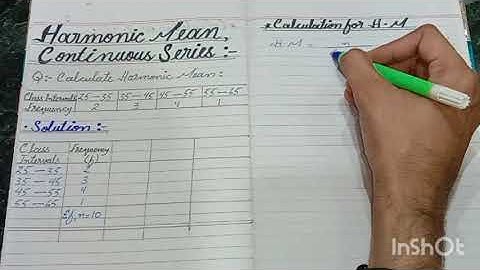 Harmonic Mean,
Continuous Series:-
Q:- Calculate Harmonic Mean:
Class Intervals 25-35 35-45 45-55 55-65
Frequency 2 3 4 1
• Solution:-
Class Intervals Frequency (f)
25-35 2
35-45 3
45-55 4
55-65 1
Σf, n=10
* Calculation for H.M
H.M = n
InShOt